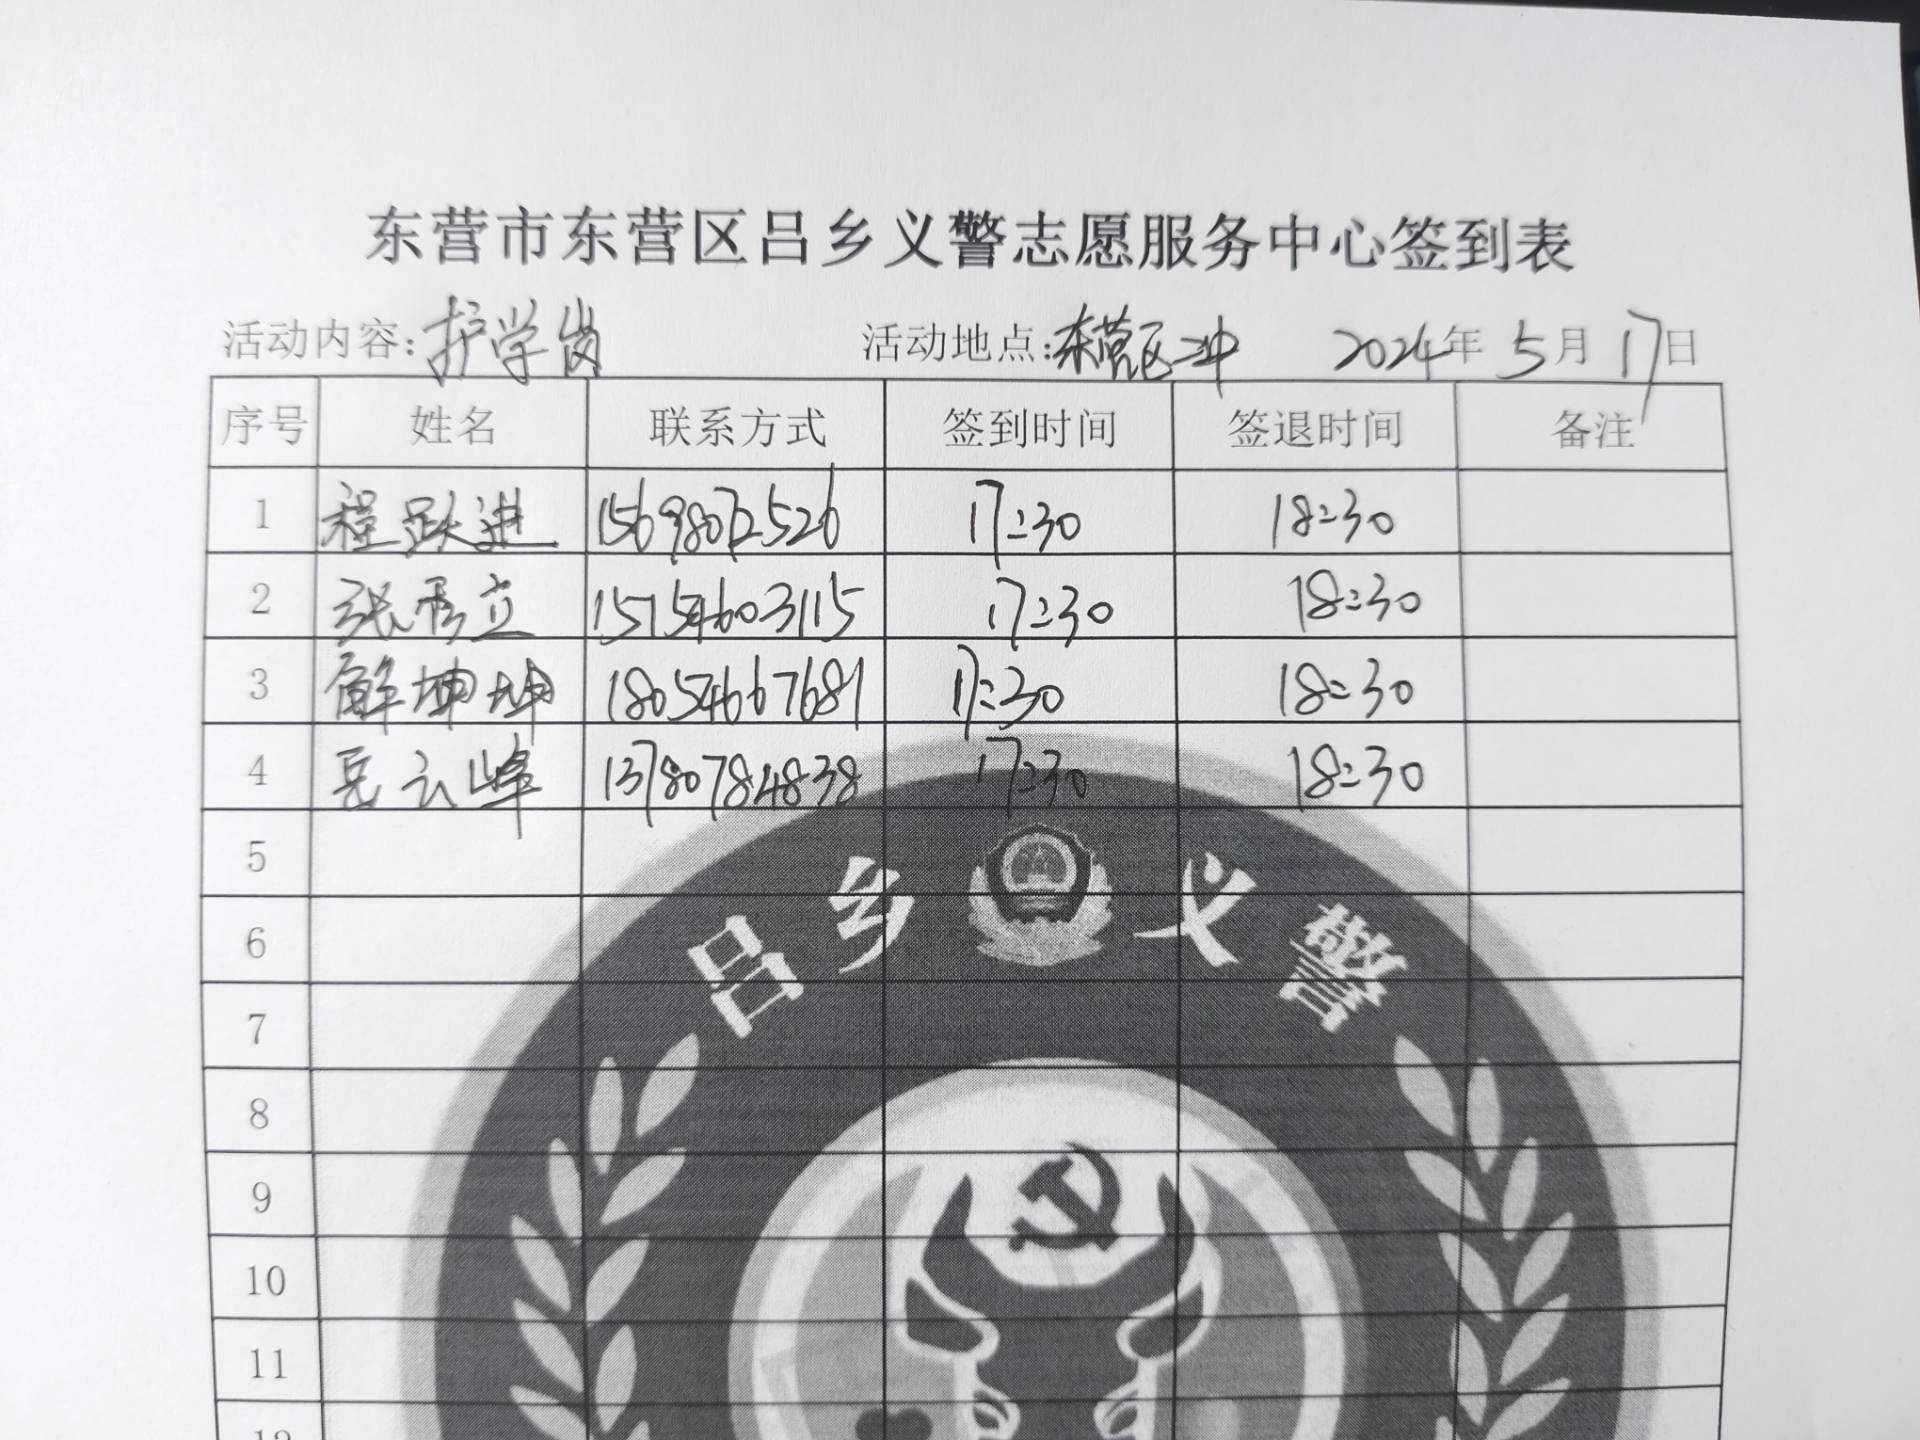 东营市东营区吕乡义警志愿服务中心签到表
活动内容:护学岗 活动地点:东营区二中 2024年5月17日
序号 姓名 联系方式 签到时间 签退时间 备注
1 程跃进 15698072526 17:30 18:30
2 张秀立 15754603115 17:30 18:30
3 解坤坤 18054667681 17:30 18:30
4 岳云峰 13780784838 17:30 18:30
5
6
7
8
9
10
11
12
吕乡义警